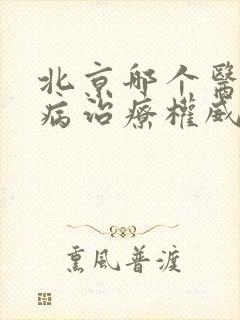 北京哪个醫
病治療權威
熏風普渡